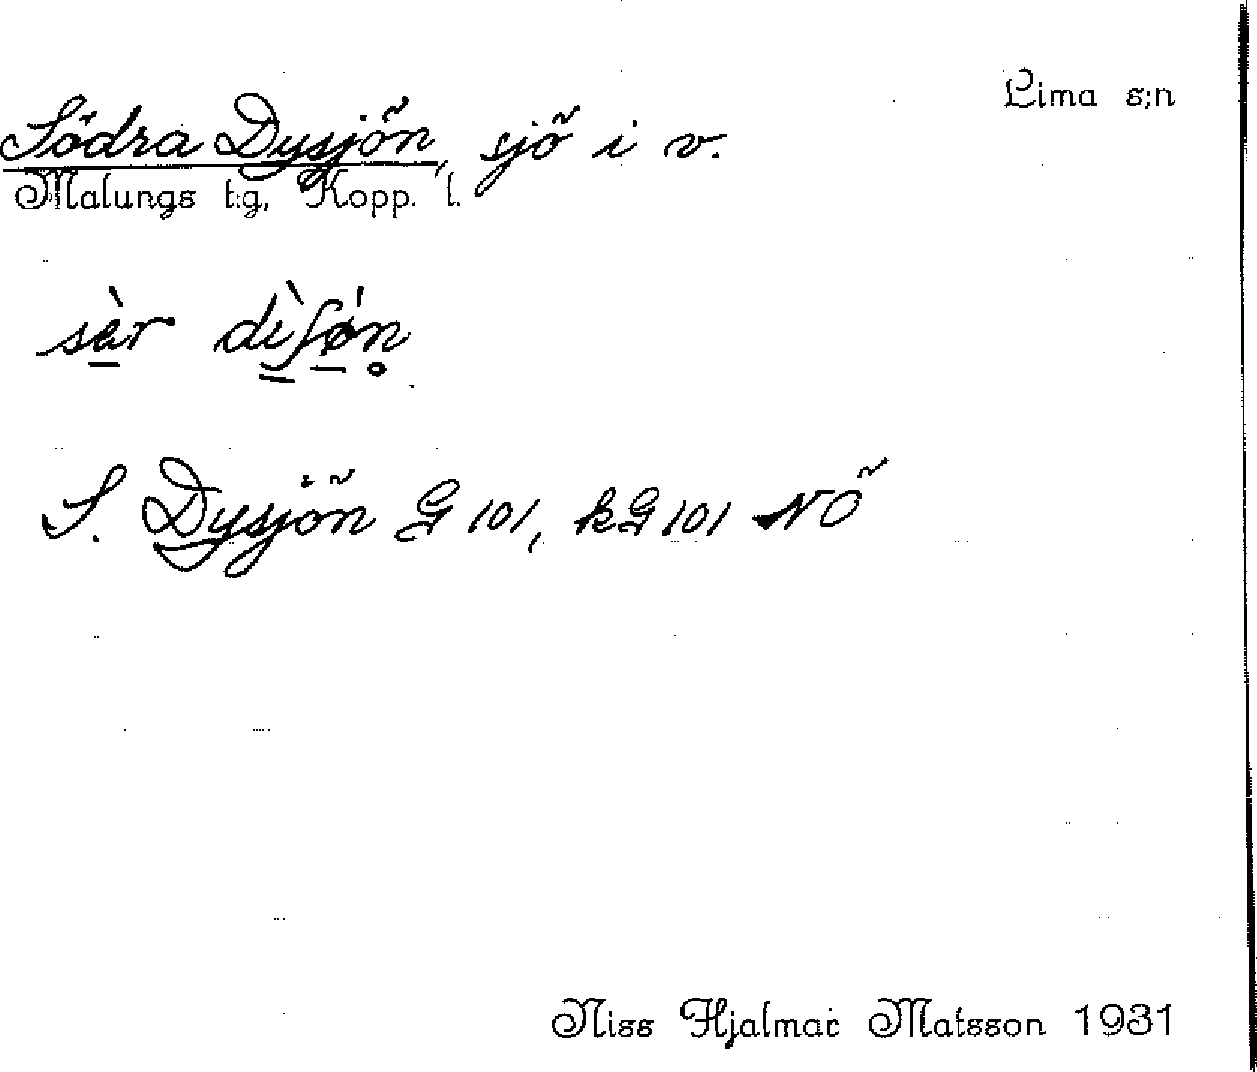 Lima s:n
Södra Dysjön, sjö i v.
Malungs t:g, Kopp. l.
sàr dìʃǿn̥
S. Dysjön G 101, kG 101 NÖ
Niss Hjalmar Matsson 1931